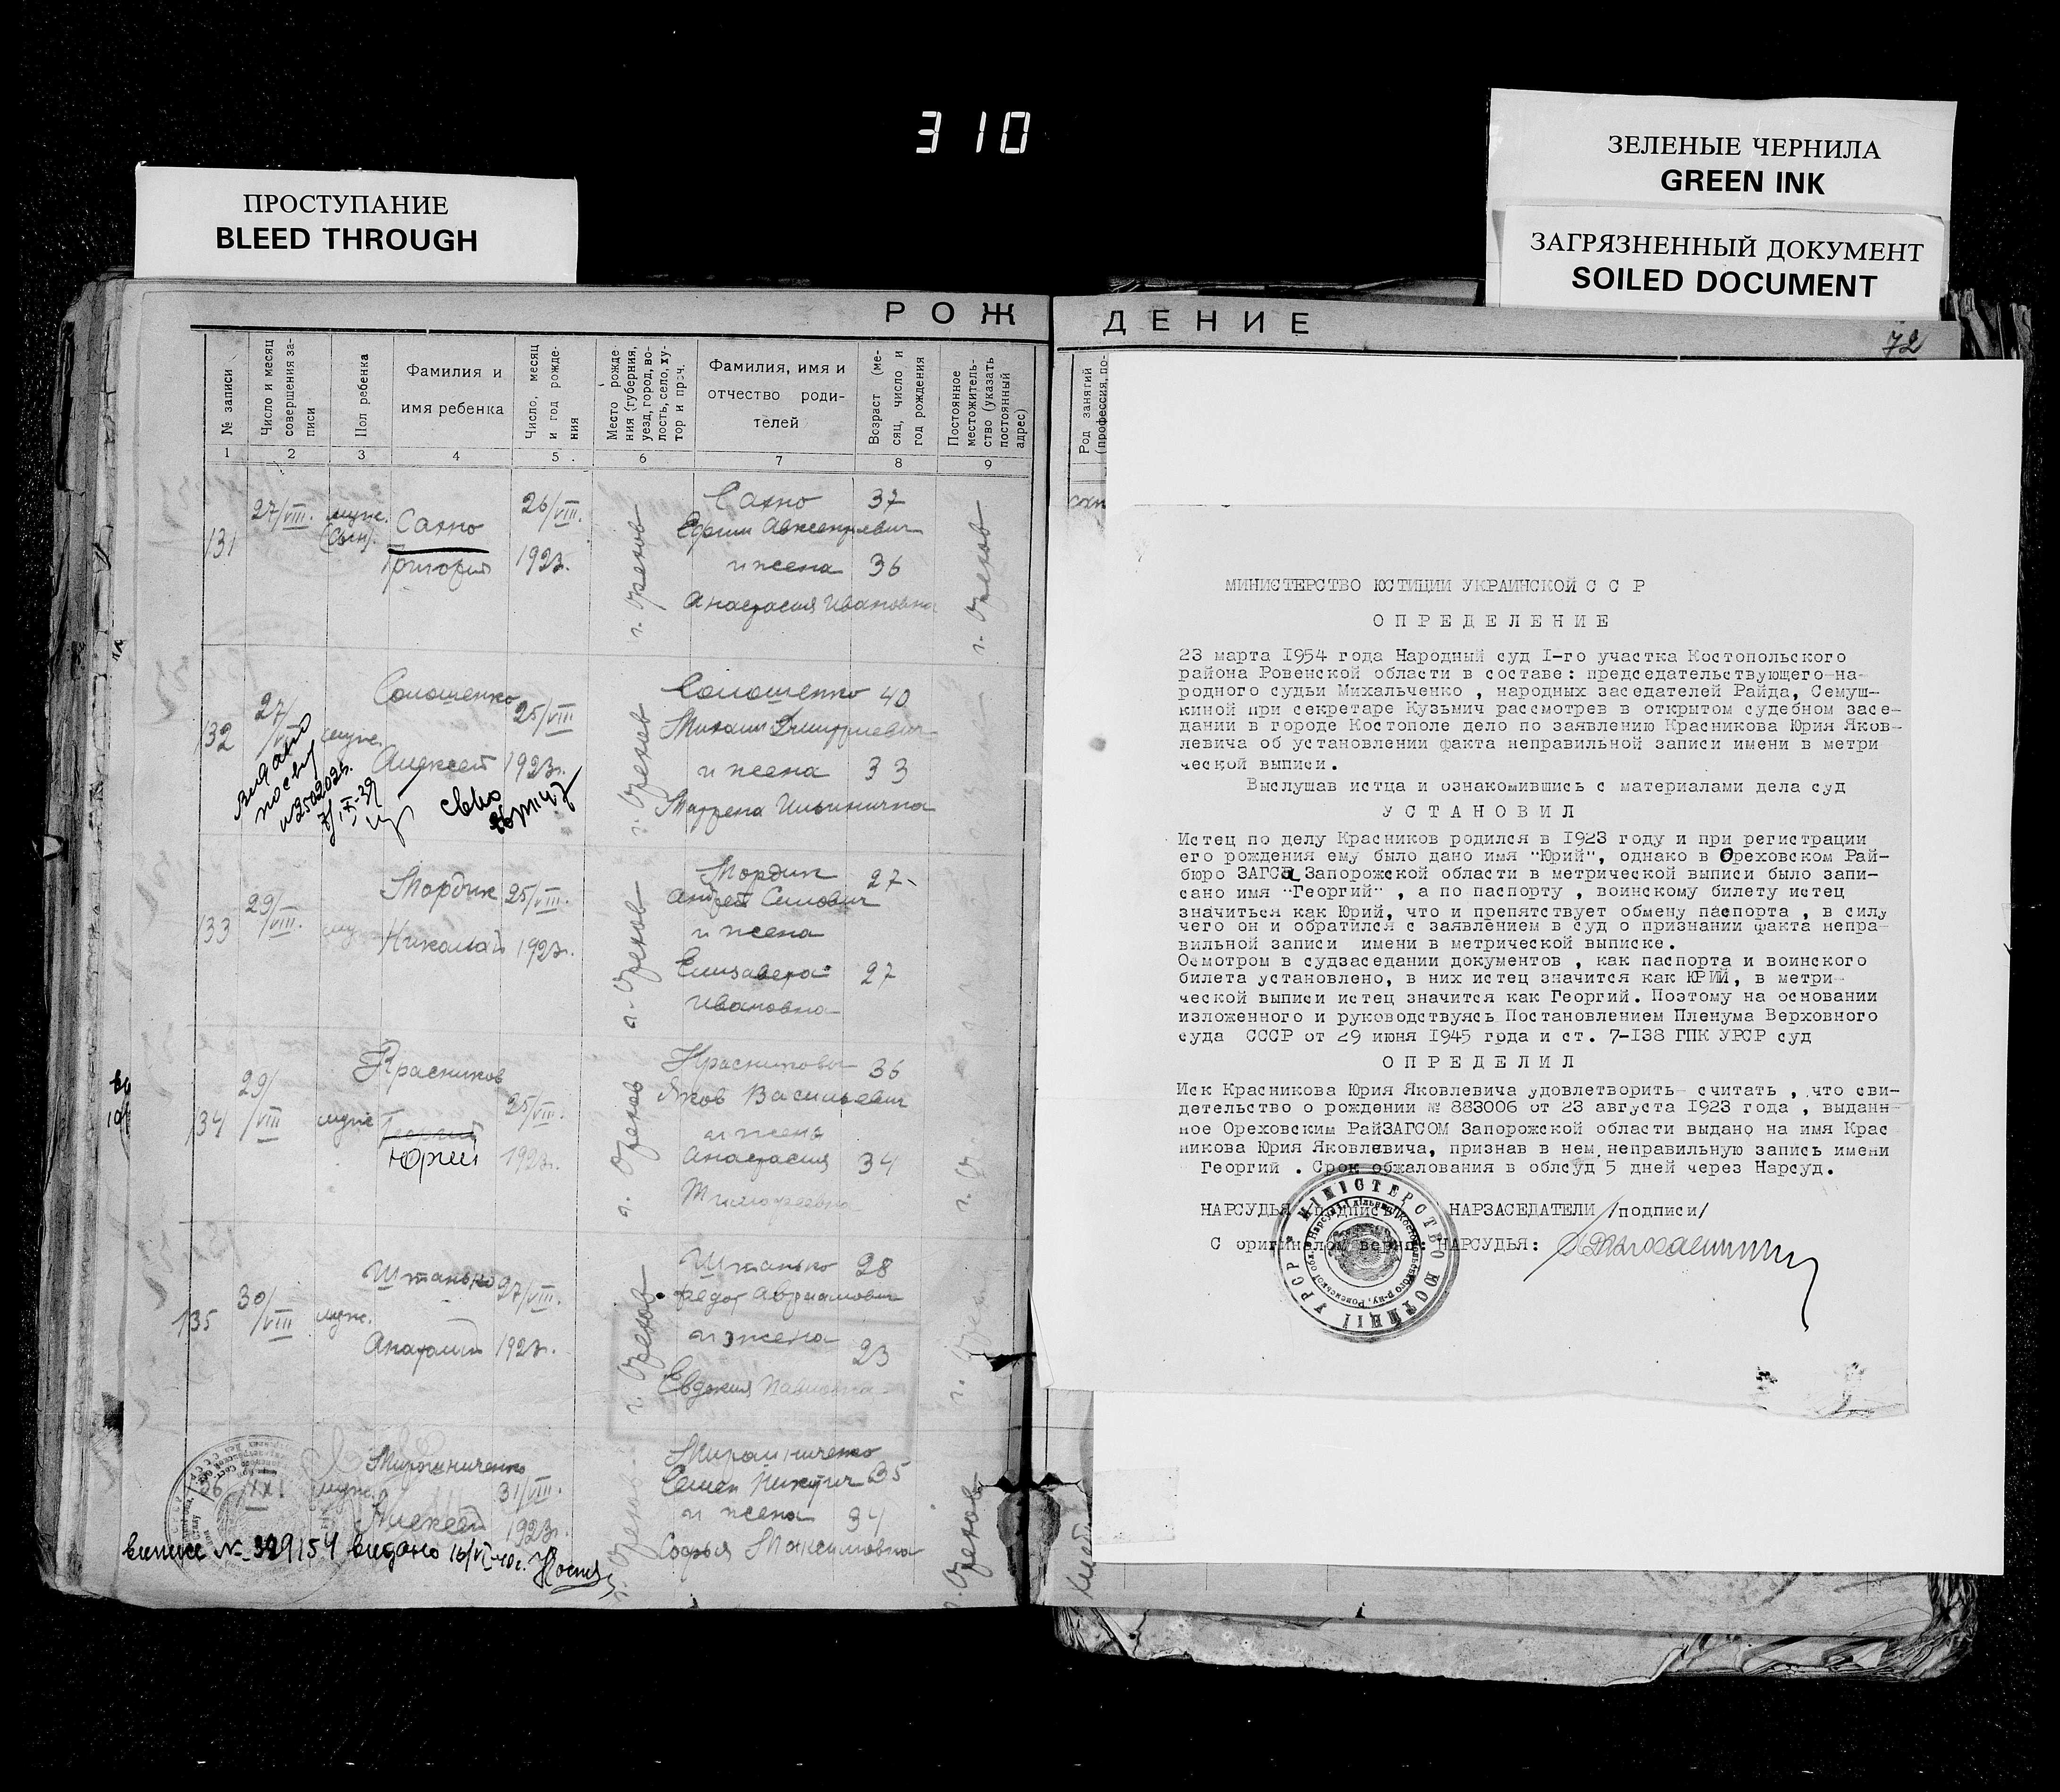 310
ПРОСТУПАНИЕ
BLEED THROUGH
ЗЕЛЕНЫЕ ЧЕРНИЛА
GREEN INK
ЗАГРЯЗНЕННЫЙ ДОКУМЕНТ
SOILED DOCUMENT
РОЖ
ДЕНИЕ
72
№ записи
Число и месяц
совершения за-
писи
Пол ребенка
Фамилия и
имя ребенка
Число, месяц
и год рожде-
ния
Место рожде-
ния (губерния,
уезд, город, во-
лость, село, ху-
тор и проч.
Фамилия, имя и
отчество роди-
телей
Возраст (ме-
сяц, число и
год рождения
Постоянное
местожитель-
ство (указать
постоянный
адрес)
Род занятий
(профессия, по-
1 2 3 4 5 6 7 8 9
131
27/VIII.
муж.
(сын).
Сахно
Григорий
26/VIII.
1923г.
г. Орехов
Сахно 37
Ефрим Авксентьевич
и жена 36
Анастасия Ивановна
г. Орехов
132
27/VIII
муж.
Солошенко
Алексей
25/VIII
1923г.
г. Орехов
Солошенко 40
Михаил Дмитриевич
и жена 33
Матрена Ильинична
133
29/VIII.
Мордик
Николай
25/VIII.
1923г.
г. Орехов
Мордик 27
Андрей Силович
и жена
Елизавета 27
Ивановна
134
29/VIII
муж
Красников
Георгий
Юрий
25/VIII.
1923г.
г. Орехов
Красниковы 36
Яков Васильевич
и жена
Анастасия 34
Тимофеевна
135
30/VIII
муж.
Штанько
Анатолий
27/VIII.
1923г.
г. Орехов
Штанько 28
Федот Авриамович
и жена
23
Евдокия Павловна
муж.
Мирошниченко
Алексей
31/VIII.
1923г.
г. Орехов
Мирошниченко
Семен Никитич 35
и жена 34
Софья Максимовна
г. Орехов
видано
МИНИСТЕРСТВО ЮСТИЦИИ УКРАИНСКОЙ С С Р
О П Р Е Д Е Л Е Н И Е
23 марта 1954 года Народный суд I-го участка Костопольского
района Ровенской области в составе: председательствующего-на-
родного судьи Михальченко , народных заседателей Райда, Семуш-
киной при секретаре Кузьмич рассмотрев в открытом судебном засе-
дании в городе Костополе дело по заявлению Красникова Юрия Яков-
левича об установлении факта неправильной записи имени в метри
ческой выписи.
Выслушав истца и ознакомившись с материалами дела суд
У С Т А Н О В И Л
Истец по делу Красников родился в 1923 году и при регистрации
его рождения ему было дано имя "Юрий", однако в Ореховском Рай-
бюро ЗАГСа Запорожской области в метрической выписи было запи-
сано имя "Георгий" , а по паспорту , воинскому билету истец
значиться как Юрий, что и препятствует обмену паспорта , в силу
чего он и обратился с заявлением в суд о признании факта непра-
вильной записи имени в метрической выписке.
Осмотром в судзаседании документов , как паспорта и воинского
билета установлено, в них истец значится как ЮРИЙ, в метри-
ческой выписи истец значится как Георгий. Поэтому на основании
изложенного и руководствуясь Постановлением Пленума Верховного
суда СССР от 29 июня 1945 года и ст. 7-138 ГПК УРСР суд
О П Р Е Д Е Л И Л
Иск Красникова Юрия Яковлевича удовлетворить считать , что сви-
детельство о рождении № 883006 от 23 августа 1923 года , выдан-
ное Ореховским РайЗАГСОМ Запорожской области выдано на имя Крас
никова Юрия Яковлевича, признав в нем неправильную запись имени
Георгий . Срок обжалования в облсуд 5 дней через Нарсуд.
НАРСУДЬЯ /подпись/ НАРЗАСЕДАТЕЛИ /подписи/
С оригиналом верно: НАРСУДЬЯ:
МІНІСТЕРСТВО ЮСТИЦІЇ УРСР